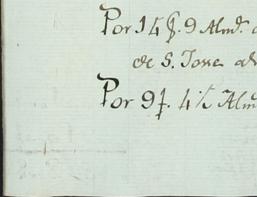 Por 14 p. 9 Almd.
de S. Jose
Por 9 p. 4 ½ Alm